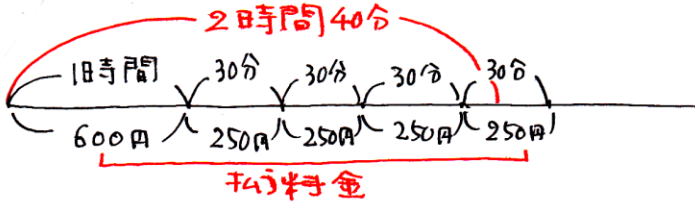 2時間40分
1時間 30分 30分 30分 30分
600円 250円 250円 250円 250円
払う料金